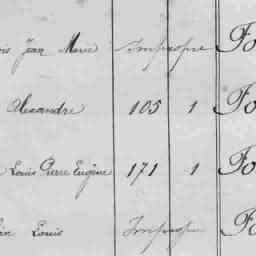 Jean Marie Impropre Fo
Alexandre 105 1 Fo
Louis Pierre Eugène 171 1 Fo
Louis Impropre Fo